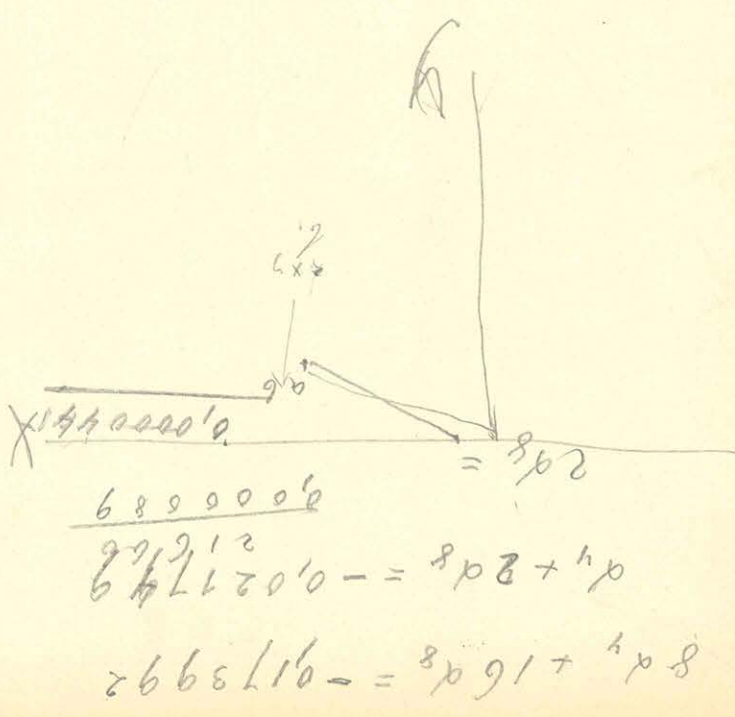 8α₄ + 16α₈ = −0,173992
α₄ + 2α₈ = −0,021749
0,000089
2α₈ =
0,0000441
X
a b
y